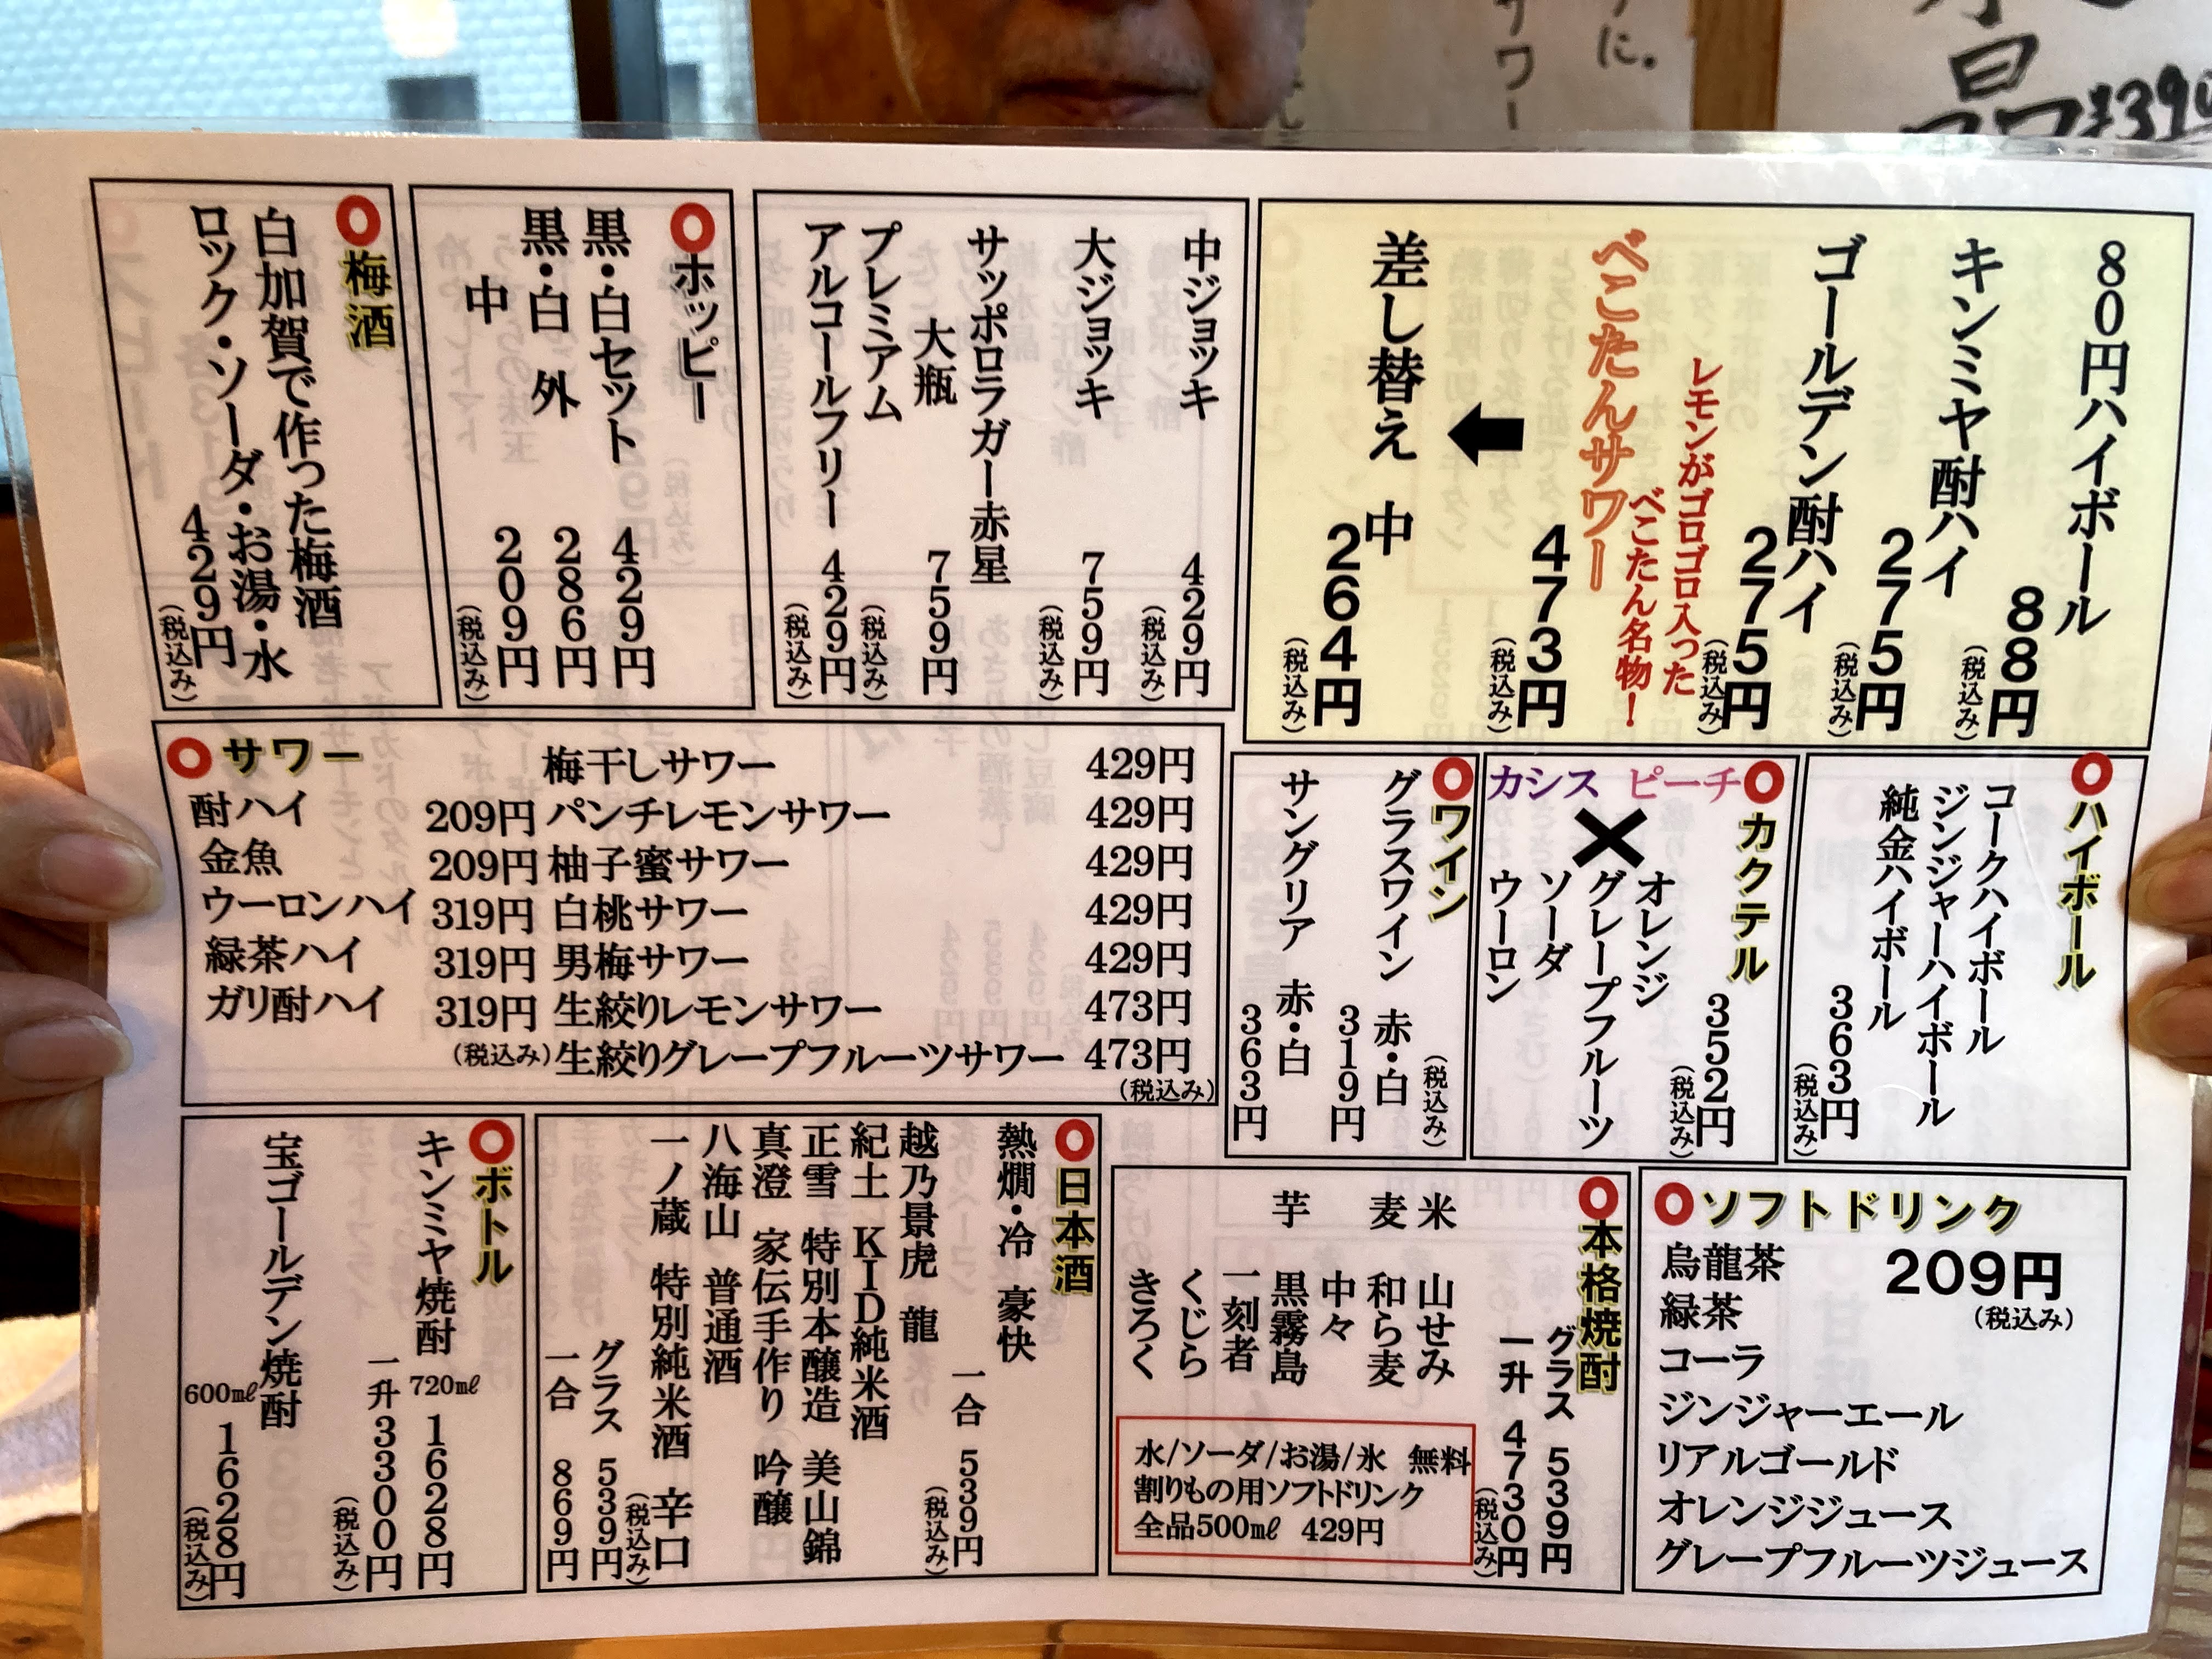 ８０円ハイボール
８８円
（税込み）
キンミヤ酎ハイ
２７５円
（税込み）
ゴールデン酎ハイ
２７５円
（税込み）
レモンがゴロゴロ入った
べこたん名物！
べこたんサワー
４７３円
（税込み）
差し替え　中
２６４円
（税込み）
中ジョッキ
４２９円
（税込み）
大ジョッキ
７５９円
（税込み）
サッポロラガー赤星
大瓶
７５９円
（税込み）
プレミアム
アルコールフリー
４２９円
（税込み）
ホッピー
黒・白セット
４２９円
黒・白　外
２８６円
中
２０９円
（税込み）
梅酒
白加賀で作った梅酒
ロック・ソーダ・お湯・水
４２９円
（税込み）
ハイボール
コークハイボール
ジンジャーハイボール
純金ハイボール
３６３円
（税込み）
カクテル
３５２円
（税込み）
カシス　ピーチ
×
オレンジ
グレープフルーツ
ソーダ
ウーロン
ワイン
（税込み）
グラスワイン　赤・白
３１９円
サングリア　赤・白
３６３円
サワー
酎ハイ 209円
金魚 209円
ウーロンハイ 319円
緑茶ハイ 319円
ガリ酎ハイ 319円
（税込み）
梅干しサワー 429円
パンチレモンサワー 429円
柚子蜜サワー 429円
白桃サワー 429円
男梅サワー 429円
生絞りレモンサワー 473円
生絞りグレープフルーツサワー 473円
（税込み）
ソフトドリンク
209円
（税込み）
烏龍茶
緑茶
コーラ
ジンジャーエール
リアルゴールド
オレンジジュース
グレープフルーツジュース
本格焼酎
グラス　５３９円
一升　４７３０円
（税込み）
米　山せみ
麦　和ら麦
中々
芋　黒霧島
一刻者
くじら
きろく
水/ソーダ/お湯/氷　無料
割りもの用ソフトドリンク
全品500㎖　429円
日本酒
熱燗・冷　豪快
一合　５３９円
（税込み）
越乃景虎　龍
紀土　ＫＩＤ純米酒
正雪　特別本醸造　美山錦
真澄　家伝手作り　吟醸
八海山　普通酒
一ノ蔵　特別純米酒　辛口
（税込み）
グラス　５３９円
一合　８６９円
ボトル
キンミヤ焼酎
720㎖　１６２８円
一升　３３００円
（税込み）
宝ゴールデン焼酎
600㎖　１６２８円
（税込み）
に。
サワー